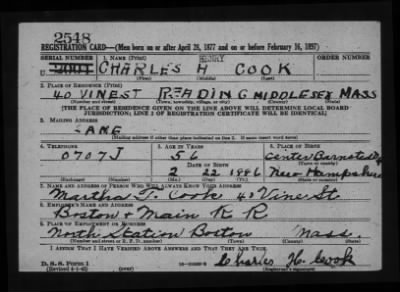 2548
REGISTRATION CARD—(Men born on or after April 28, 1877 and on or before February 16, 1897)
SERIAL NUMBER 1. NAME (Print) ORDER NUMBER
HENRY
U CHARLES H COOK
(First) (Middle) (Last)
2. PLACE OF RESIDENCE (Print)
40 VINE ST READING MIDDLESEX MASS
(Number and street) (Town, township, village, or city) (County) (State)
[THE PLACE OF RESIDENCE GIVEN ON THE LINE ABOVE WILL DETERMINE LOCAL BOARD
JURISDICTION; LINE 2 OF REGISTRATION CERTIFICATE WILL BE IDENTICAL]
3. MAILING ADDRESS
SAME
(Mailing address if other than place indicated on line 2. If same insert word same)
4. TELEPHONE 5. AGE IN YEARS 6. PLACE OF BIRTH
0707J 56 Center Barnstead
DATE OF BIRTH (Town or county)
2 22 1886 New Hampshire
(Exchange) (Number) (Mo.) (Day) (Yr.) (State or country)
7. NAME AND ADDRESS OF PERSON WHO WILL ALWAYS KNOW YOUR ADDRESS
Martha T. Cook 40 Vine St
8. EMPLOYER'S NAME AND ADDRESS
Boston & Main R R
9. PLACE OF EMPLOYMENT OR BUSINESS
North Station Boston Mass.
(Number and street or R. F. D. number) (Town) (County) (State)
I AFFIRM THAT I HAVE VERIFIED ABOVE ANSWERS AND THAT THEY ARE TRUE.
D. S. S. Form 1
(Revised 4-1-42) Charles H. Cook
(Registrant's signature)